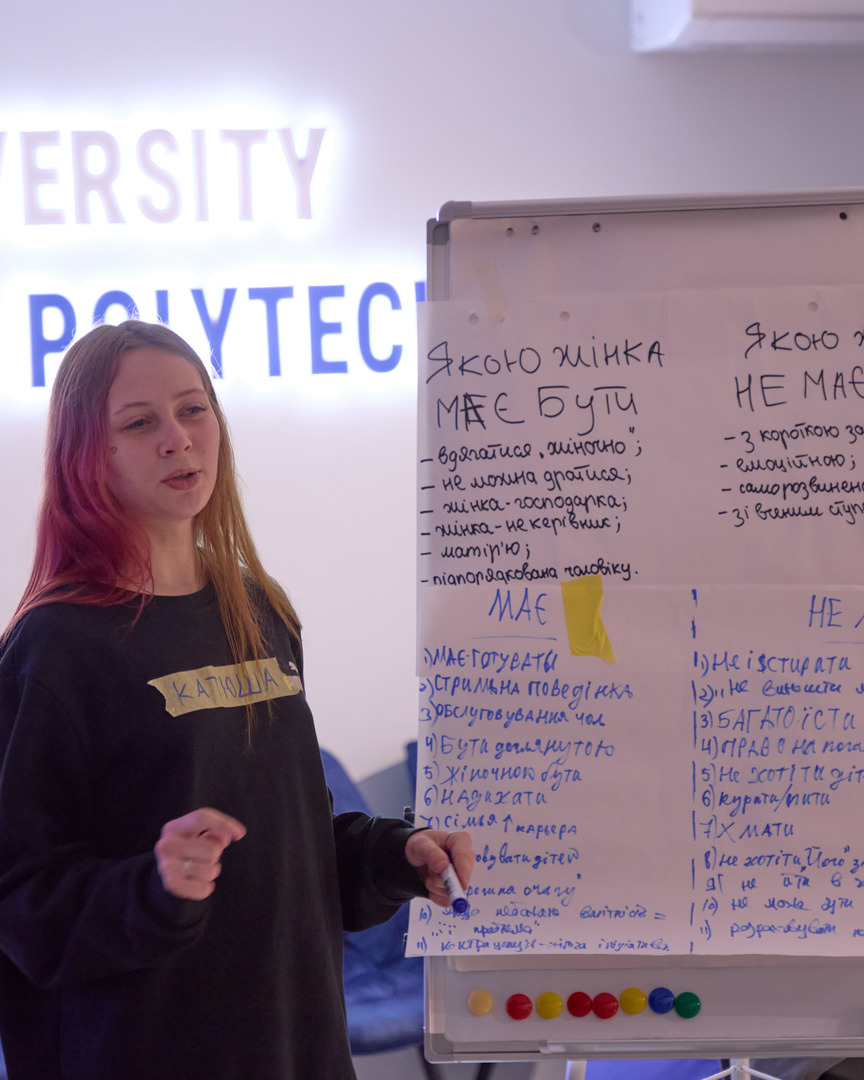 VERSITY
POLYTEC
КАТЮША
ЯКОЮ ЖІНКА
МАЄ БУТИ
- вдягатися „жіночно";
- не можна дратися;
- жінка-господарка;
- жінка-не керівник;
- матір'ю;
- підпорядкована чоловіку.
ЯКОЮ
НЕ МАЄ
- з короткою
- емоційною;
- саморозвинен
- зі вченим
МАЄ
1) МАЄ ГОТУВАТЫ
2) СТРИМАНА ПОВЕДІНКА
3) ОБСЛУГОВУВАННЯ ЧОЛ
4) БУТИ доглянутою
5) Жіночною бути
6) НАДИХАТИ
7) сімья ↑ карьєра
дітей
очагу"
10)
проблема"
11)
НЕ
1) Не і стирати
2) не виносити
3) БАГАТО ЇСТИ
4) ПРАВО НА
5) Не хотіти
6) курити/пити
7) Х МАТИ
8) не хотіти „Його"
9) не в
10) не може бути
11) розраховувати